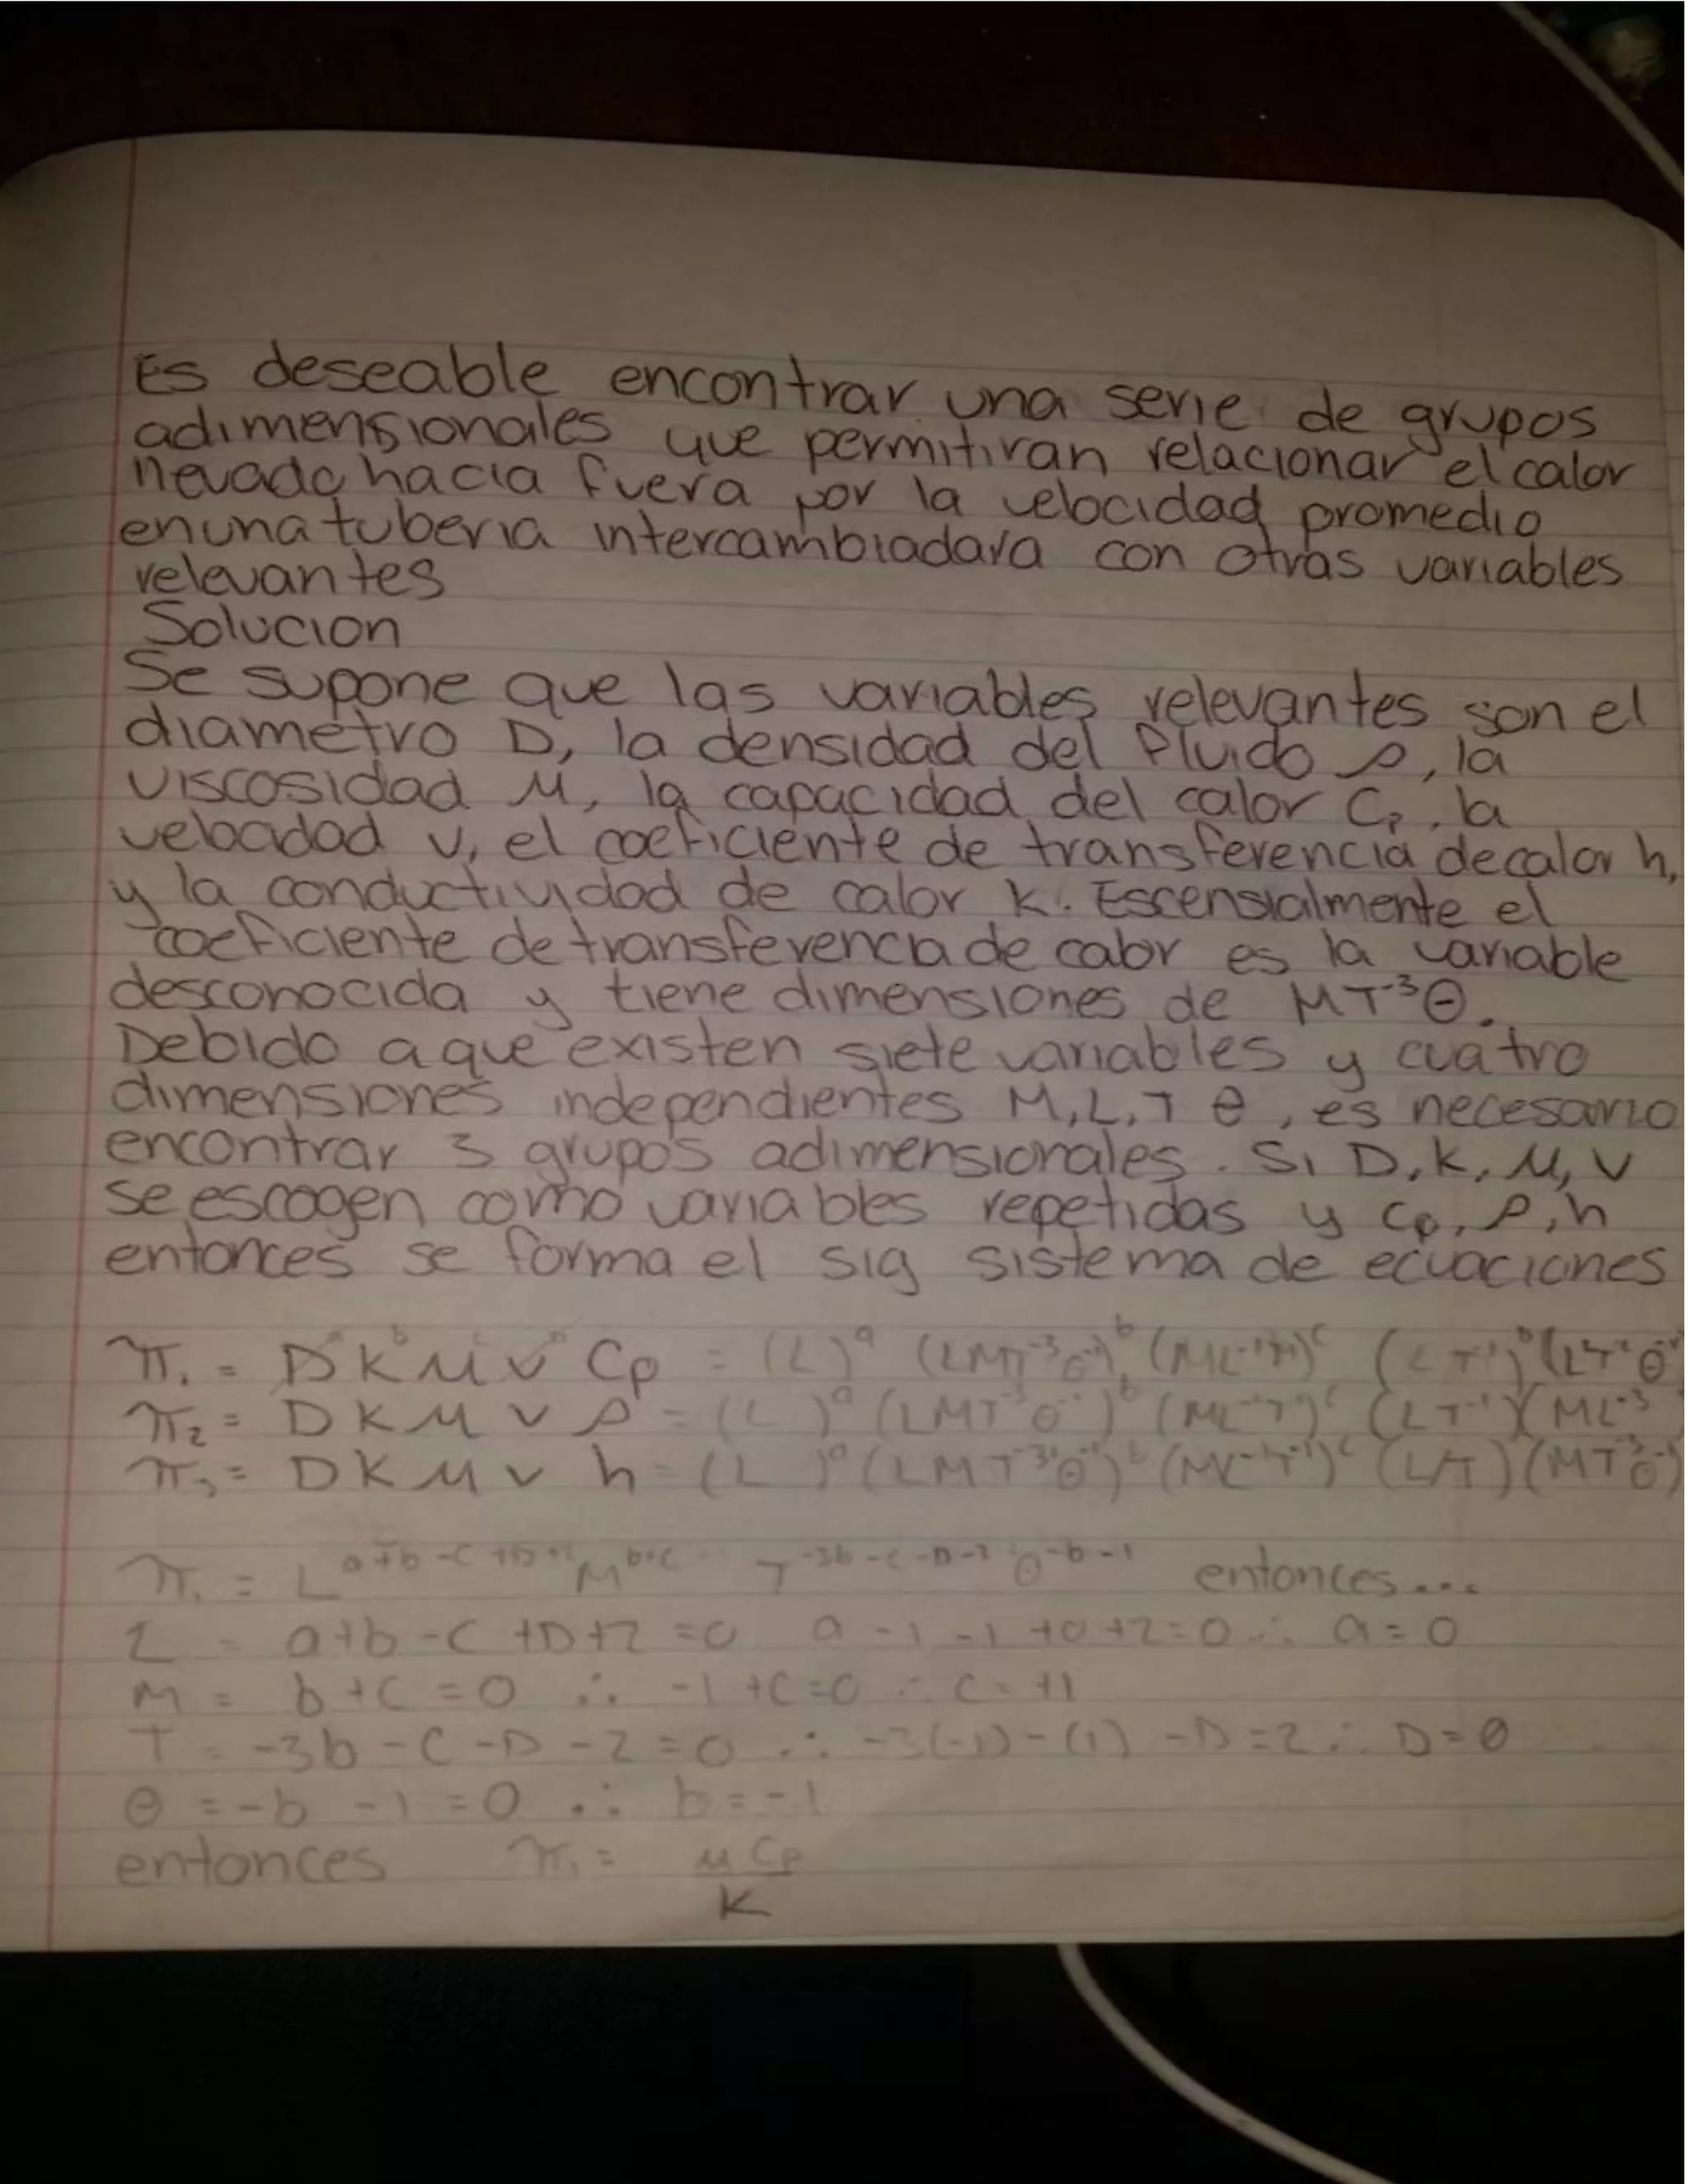 Es deseable encontrar una serie de grupos
adimensionales que permitiran relacionar el calor
nevado hacia fuera por la velocidad promedio
en una tuberia intercambiadara con otras variables
relevantes
Solucion
Se supone que las variables relevantes son el
diametro D, la densidad del fluido ρ, la
viscosidad μ, la capacidad del calor Cp, la
velocidad v, el coeficiente de transferencia de calor h,
y la conductividad de calor k. Escensialmente el
coeficiente de transferencia de calor es la variable
desconocida y tiene dimensiones de MT⁻³Θ.
Debido a que existen siete variables y cuatro
dimensiones independientes M, L, T θ, es necesario
encontrar 3 grupos adimensionales. Si D, k, μ, v
se escogen como variables repetidas y Cp, ρ, h
entonces se forma el sig sistema de ecuaciones
π₁ = D K μ v Cp = (L)ᵃ (LMT⁻³θ⁻¹)ᵇ
π₂ = D K μ v ρ = (L)ᵃ (LMT⁻³θ⁻¹)ᵇ (ML⁻³
π₃ = D K μ v h = (L)ᵃ (LMT⁻³θ⁻¹)ᵇ (L/T) (MT⁻³θ⁻¹)
π₁ = L^a+b-c+D+2 M^b+c T^-3b-c-D-2 θ^-b-1 entonces...
L = a+b-c+D+2=0 a-1-1+0+2=0 ∴ a=0
M = b+c=0 ∴ -1+c=0 ∴ c=+1
T = -3b-c-D-2=0 ∴ -3(-1)-(1)-D=2 ∴ D=0
θ = -b-1=0 ∴ b=-1
entonces π₁ = μCp
K